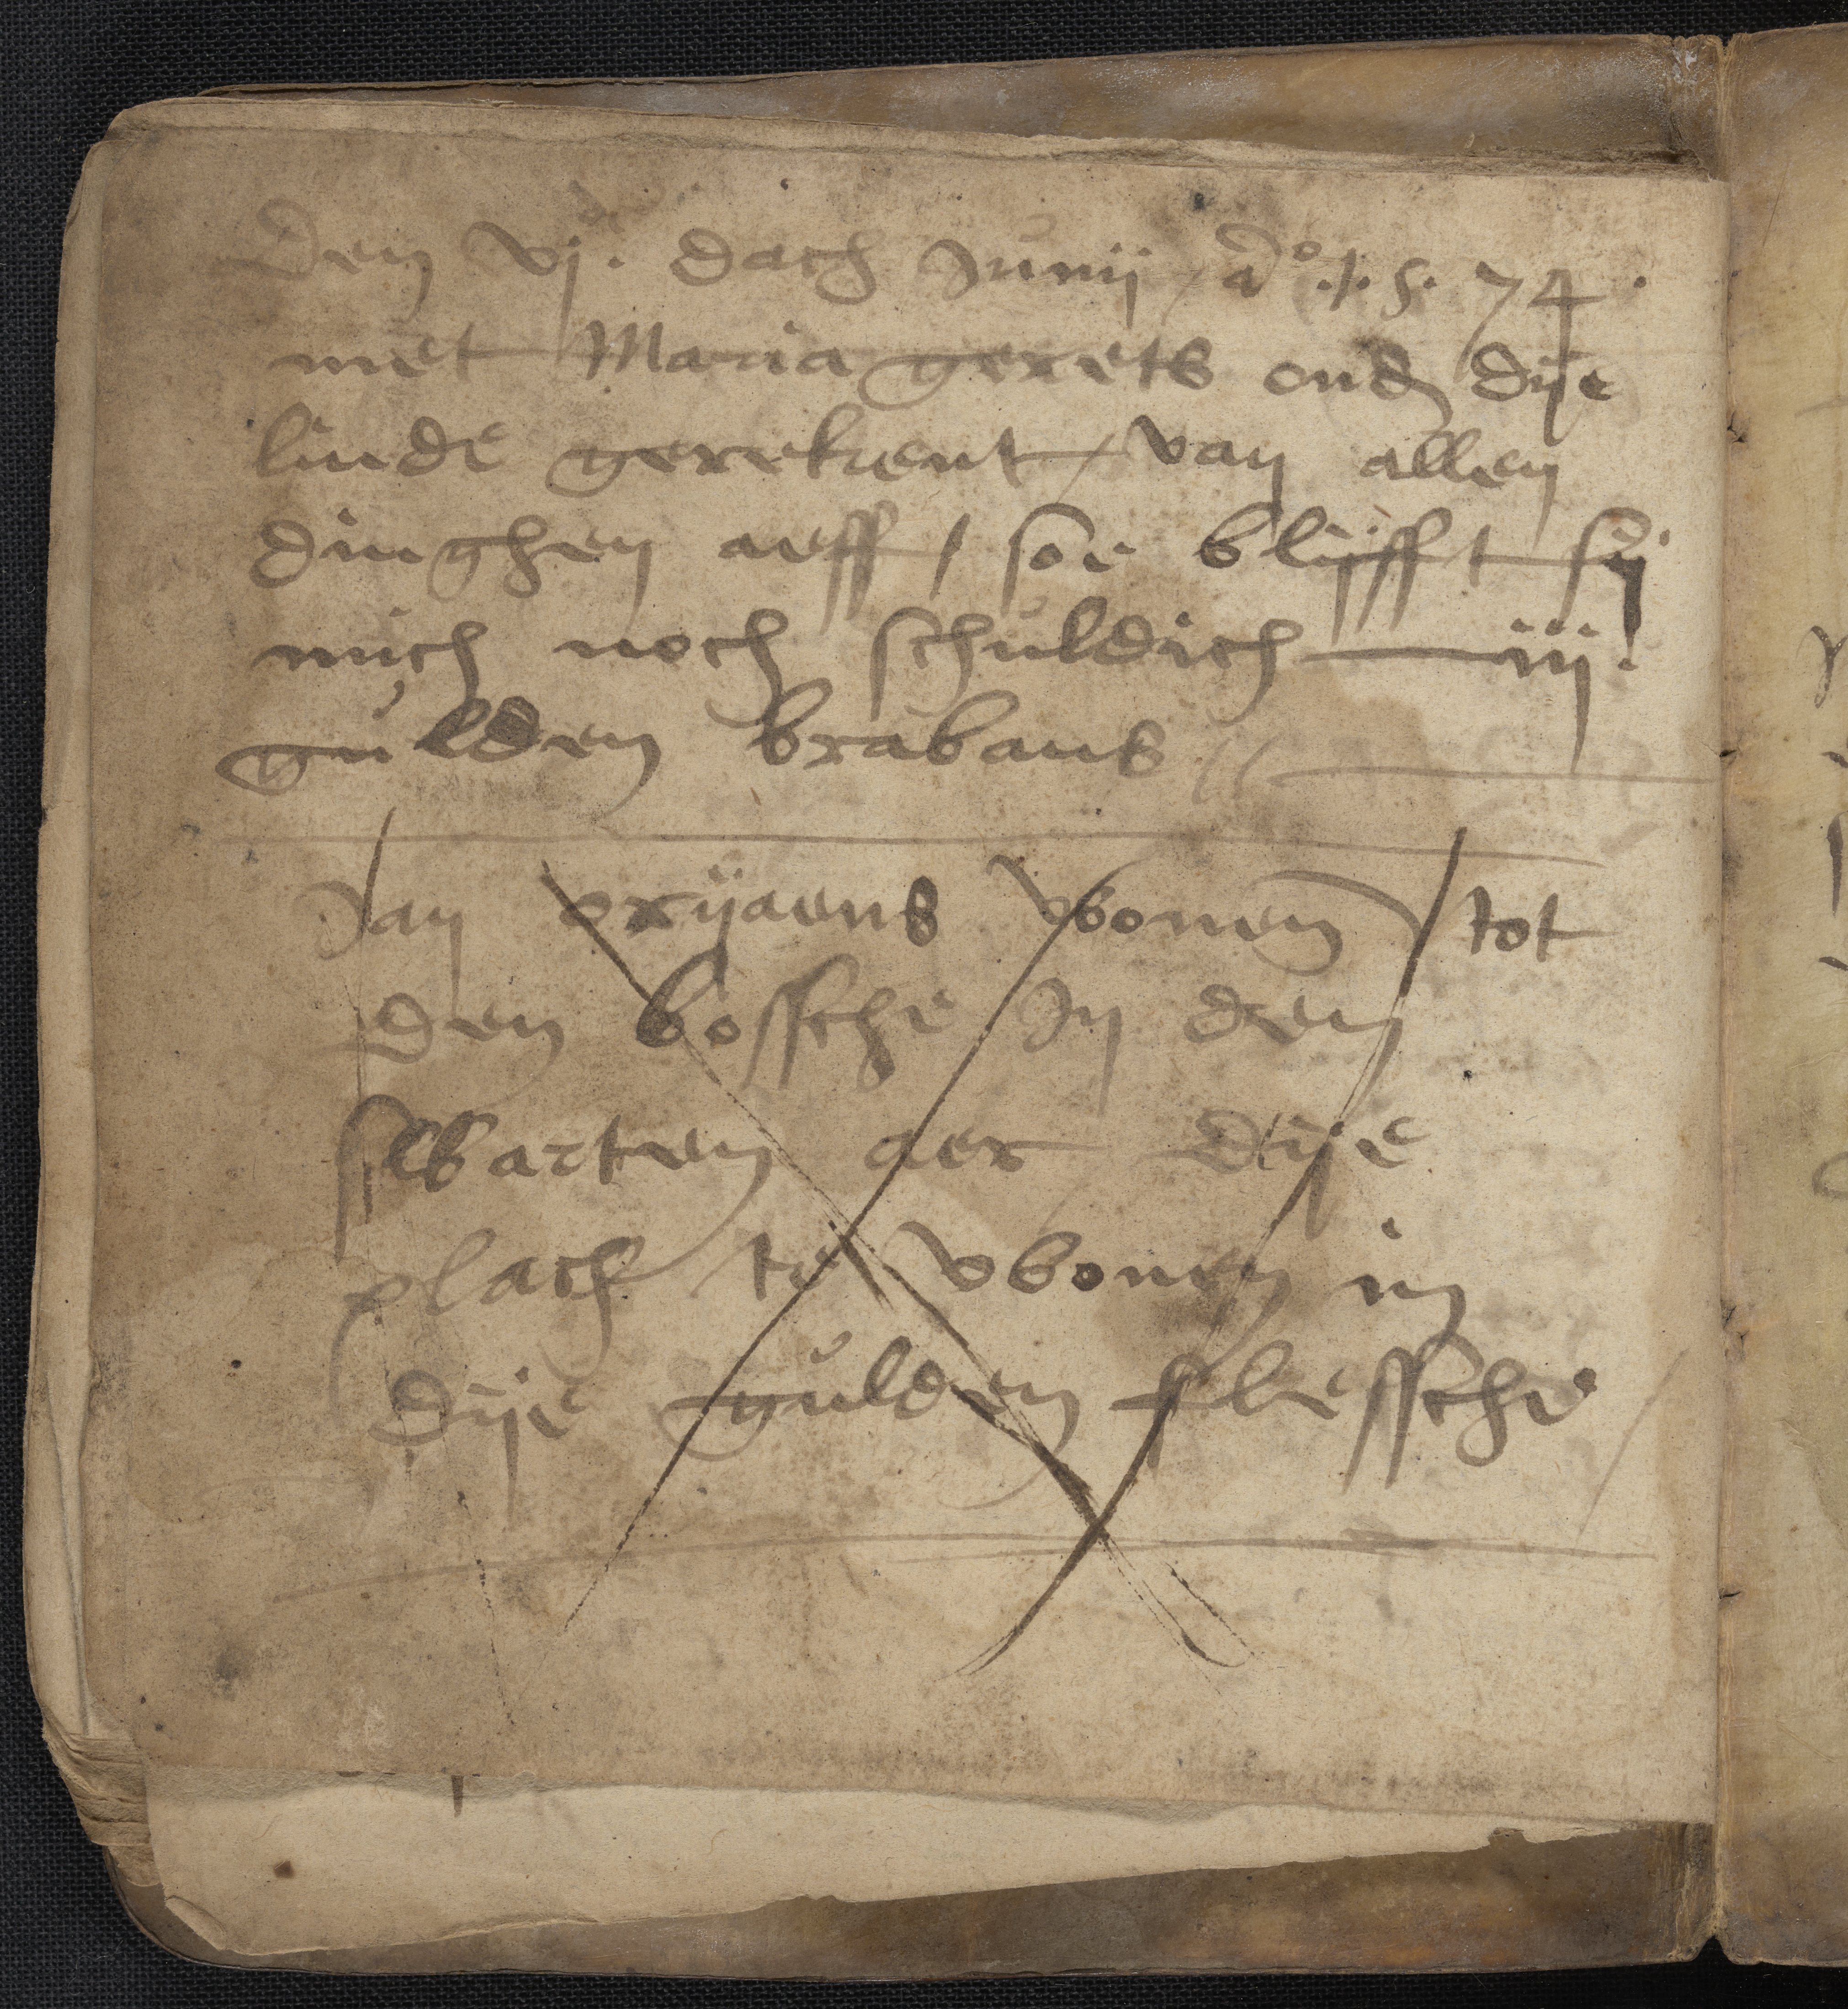 Den vj. dach Junij / a° .1.5. 74.
met Maria gerets ond dije
linde gerekent / van allen
dinghen aeff / soe blijfft sij
mich noch schuldich — iij.
gulden brabans //
Jan orijaens wonen tot
den bossche In den
swarten aer dije
plach te wonen in
dije gulden flessche